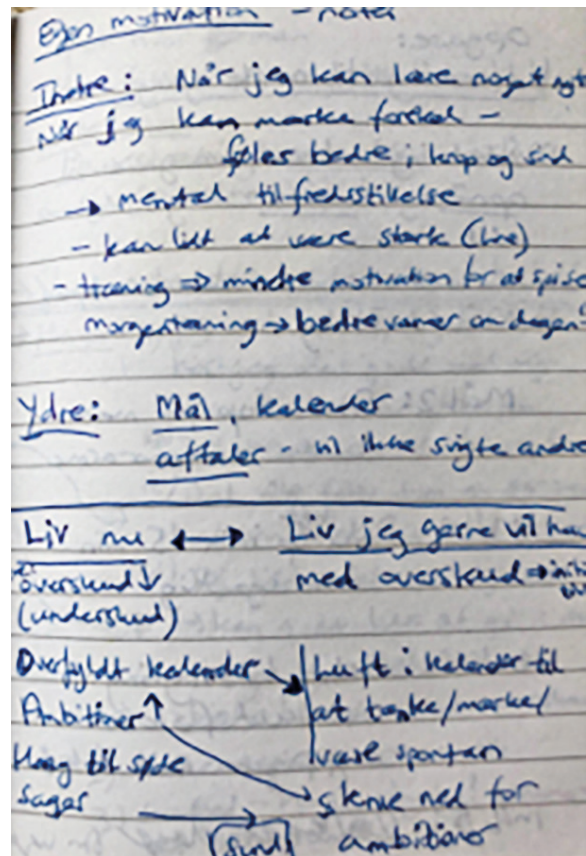 Egen motivation - noter
Indre: Når jeg kan lære noget nyt
Når jeg kan mærke forskel -
føles bedre i krop og sind
→ mental tilfredsstillelse
- kan lidt at være stærk
- træning ⇒ mindre motivation for at spise
morgentræning → bedre vaner om dagen
Ydre: Mål, kalender
aftaler - vil ikke svigte andre
Liv nu ↔ Liv jeg gerne vil ha
overskud ↓
(underskud)
med overskud ⇒
Overfyldt kalender → Luft i kalender til
at tænke/mærke/
være spontan
Ambitioner ↑
til søde
sager
skrue ned for
ambitioner
(sund)